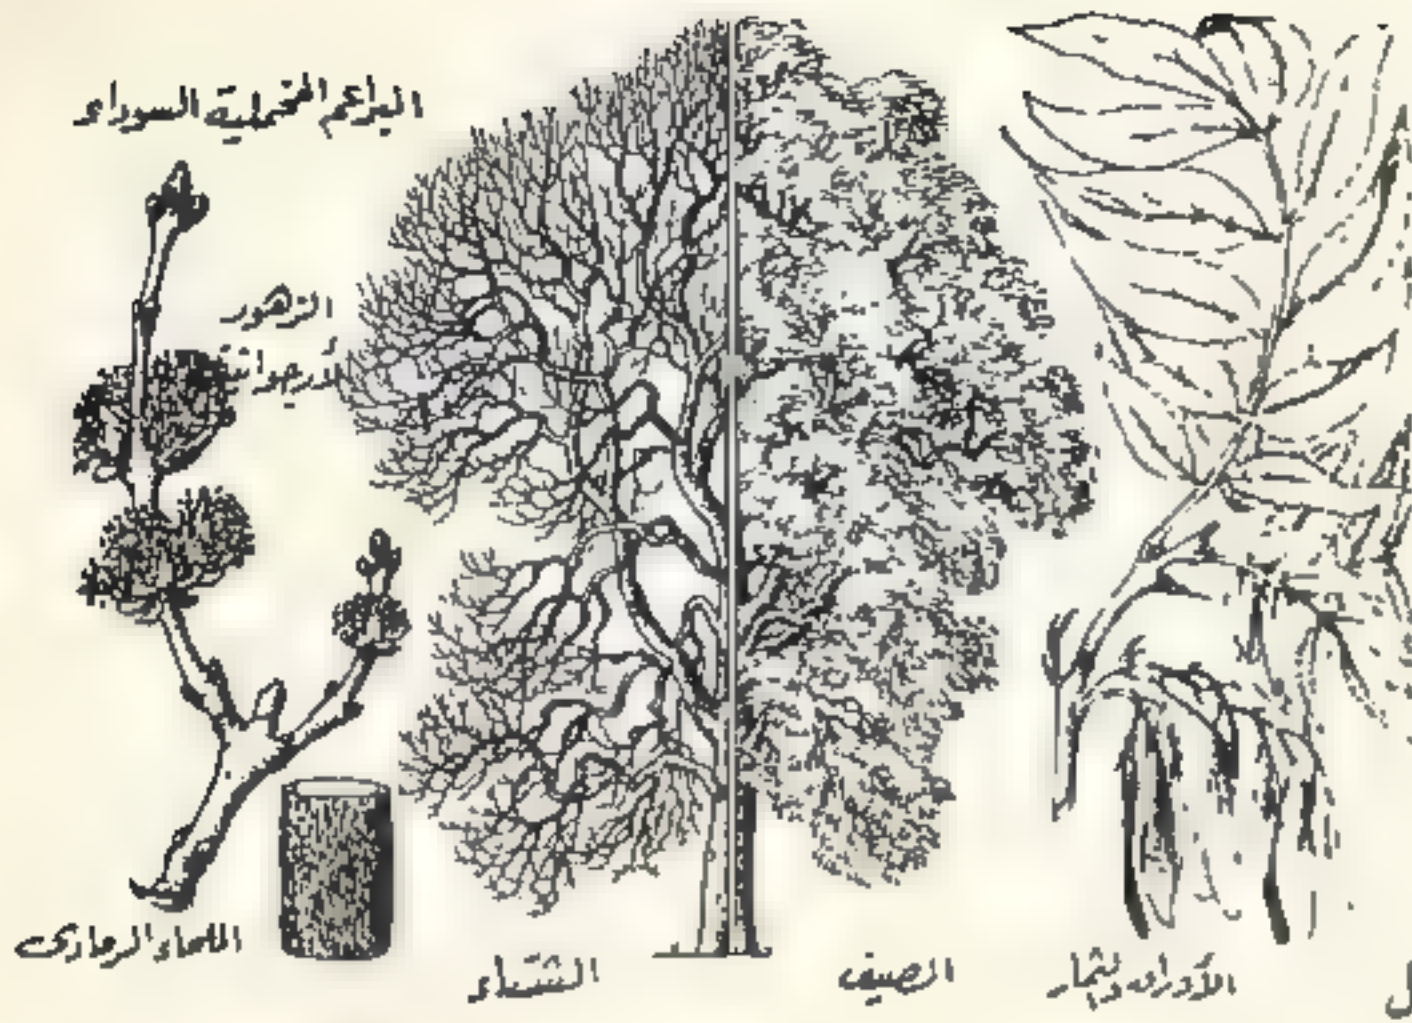 البراعم المخملية السوداء
الزهور
الأرجوانية
اللحاء الرمادى
الشتاء
الصيف
الأوراق والثمار